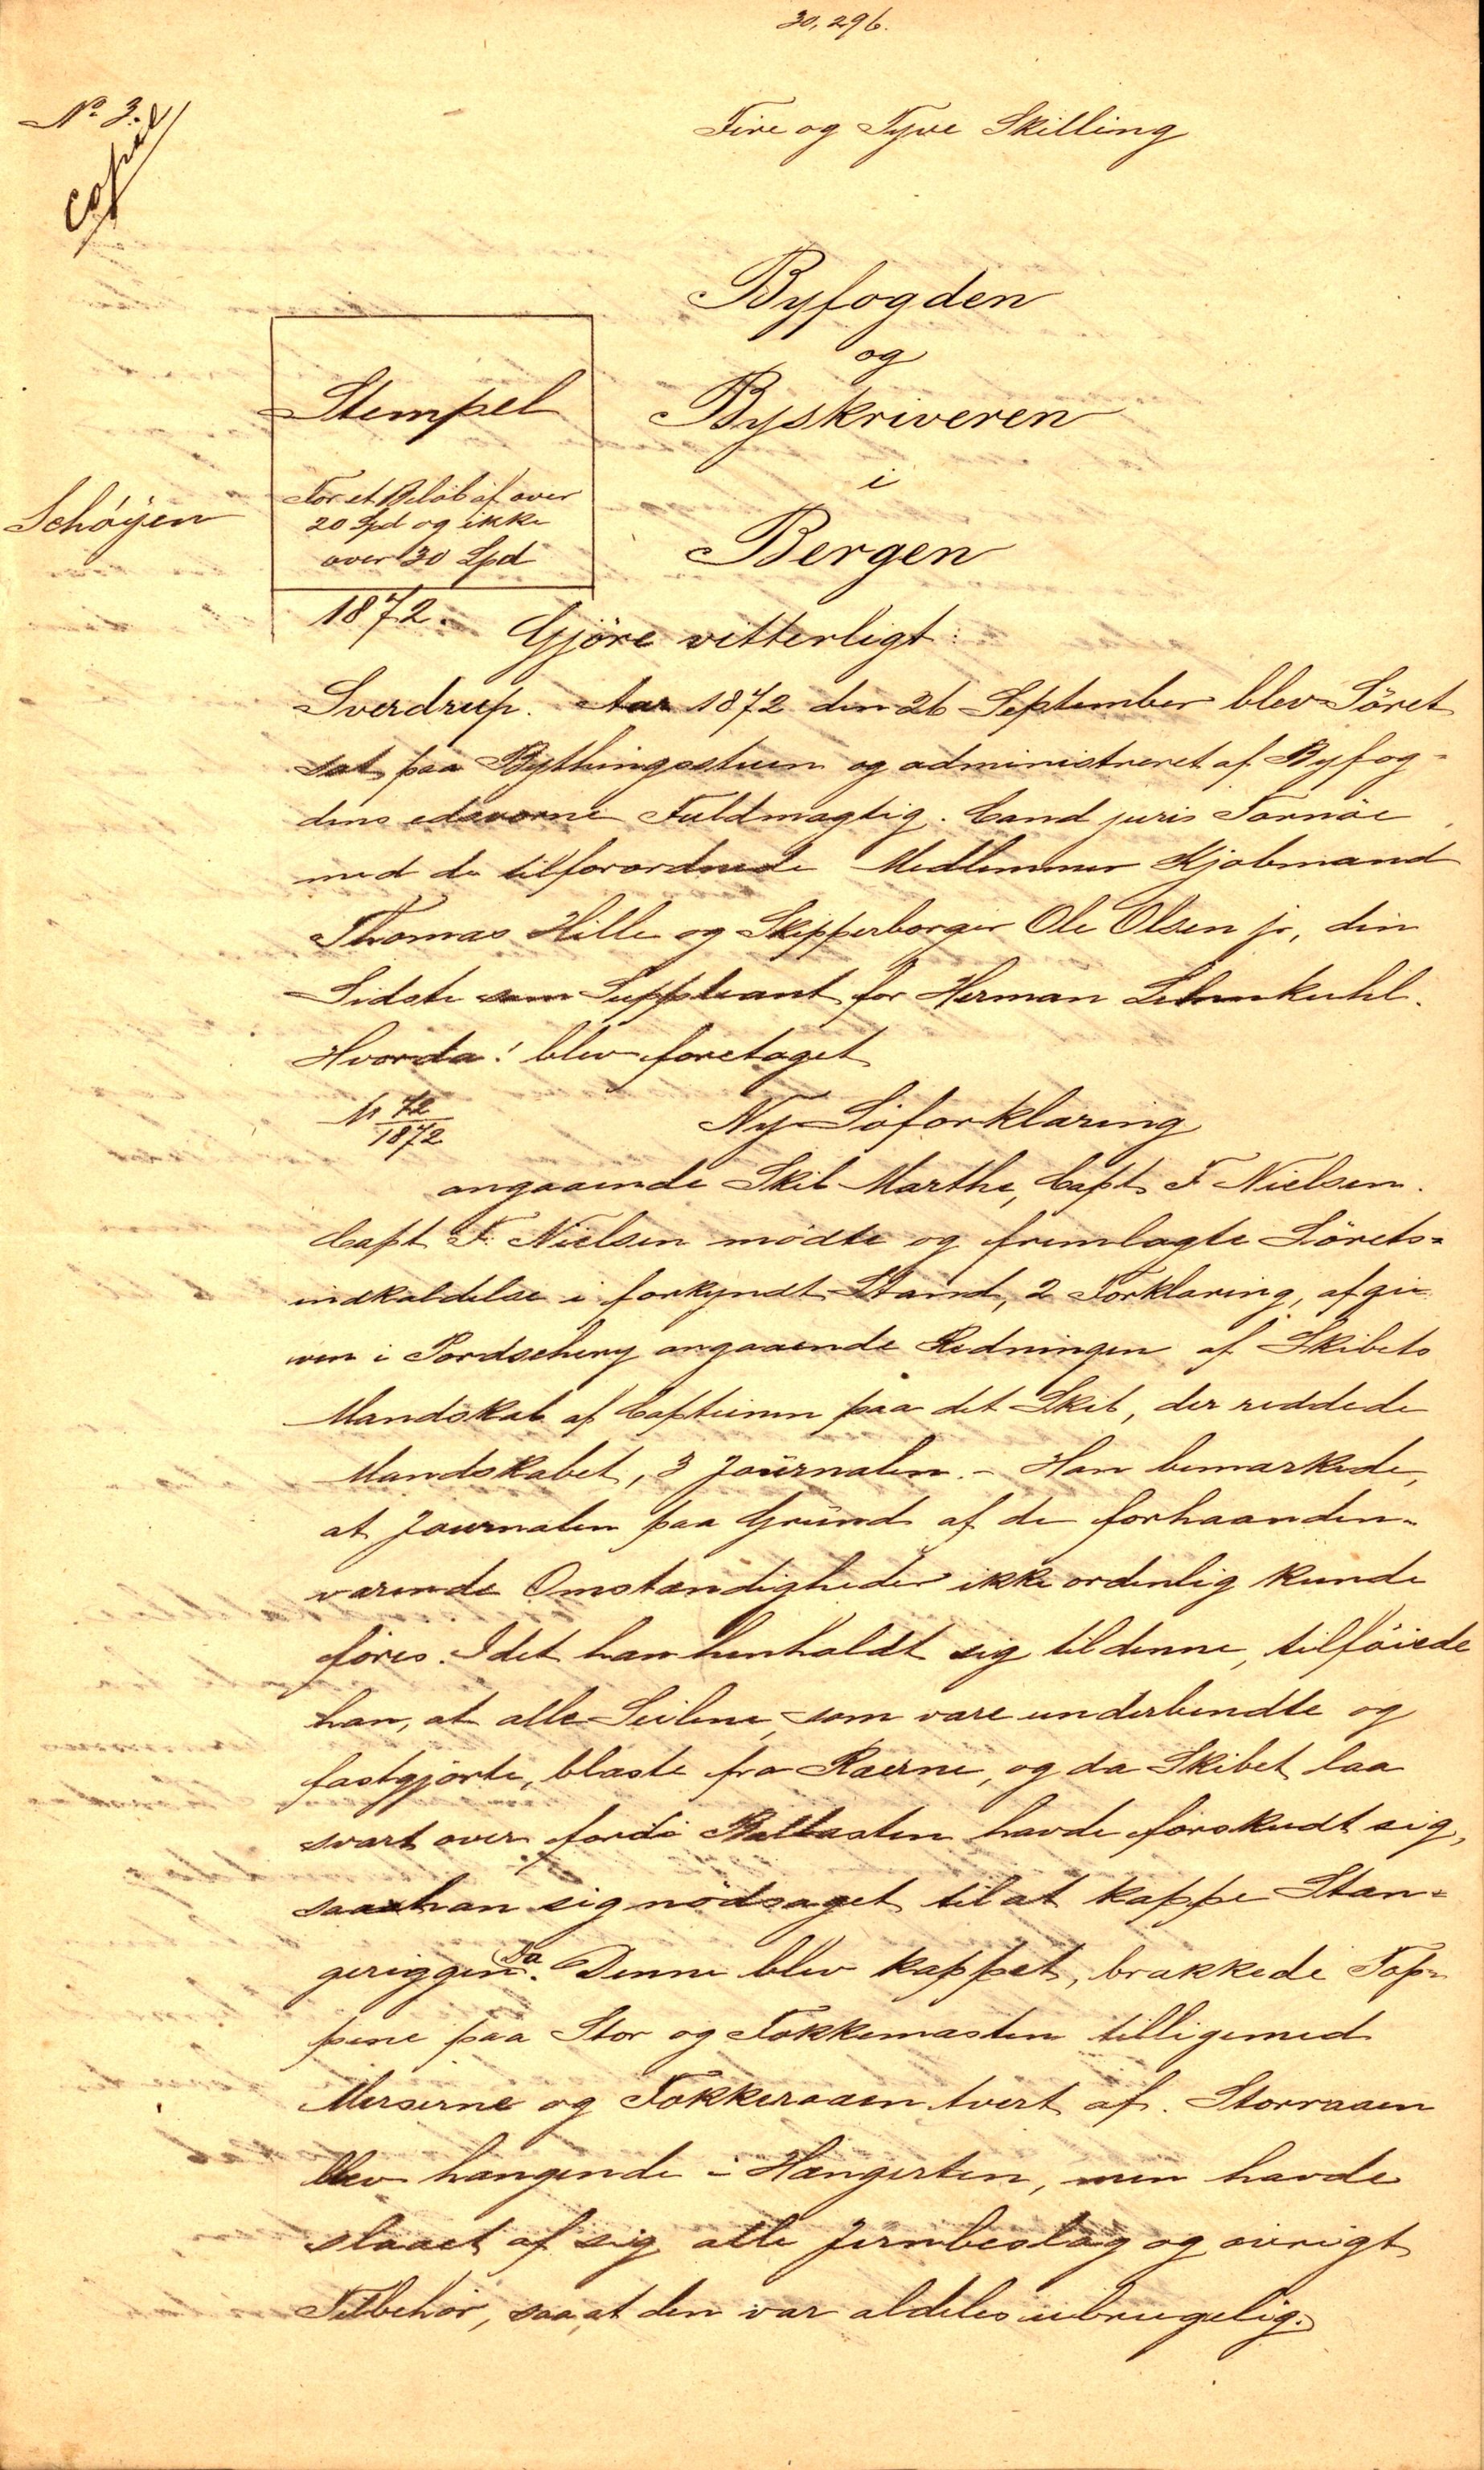 30,296.
No 3.
Copie
Fire og Tyve Skilling
Byfogden
og
Byskriveren
i
Bergen
Stempel
For et Beløb af over
20 Spd og ikke
over 30 Spd
1872.
Schøyen
Gjöre vitterligt:
Sverdrup. Aar 1872 den 26 September blev Söret
sat paa Bythingsstuen og administreret af Byfog-
dens edsvorne Fuldmægtig. Cand juris Tornöe
med de tilforordnede Medlemmer Kjøbmand
Thomas Hille og Skipperborger Ole Olsen jr, den
Sidste som Suppleant for Herman Lehmkuhl.
Hvorda! blev foretaget
N 72/1872
Ny Söforklaring
angaaende Skib Marthe, Capt F Nielsen.
Capt F. Nielsen mødte og fremlagte Sörets-
indkaldelse i forkyndt Stand, 2 Forklaring, afgi-
ven i angaaende Redningen af Skibets
Mandskab af Capteinen paa det Skib, der reddede
Mandskabet, 3 Journalen. - Han bemærkede,
at Journalen paa Grund af de forhaanden-
værende Omstændigheder ikke ordenlig kunde
föres. Idet han henholdt sig til denne, tilföiede
han, at alle Seilene, som vare underbundte og
fastgjorte, blæste fra Raerne, og da Skibet laa
svært over fordi Ballasten havde forskudt sig,
saa han sig nödsaget til at kappe Stæn-
geriggen. Da Denne blev kappet, brækkede Top-
pene paa Stor og Fokkemasten tilligemed
Merserne og Fokkeraaen tvert af. Storraaen
blev hængende i Hængerten, men havde
slaaet af sig alle Jernbeslag og øvrigt
Tilbehör, saa at den var aldeles ubrugelig.